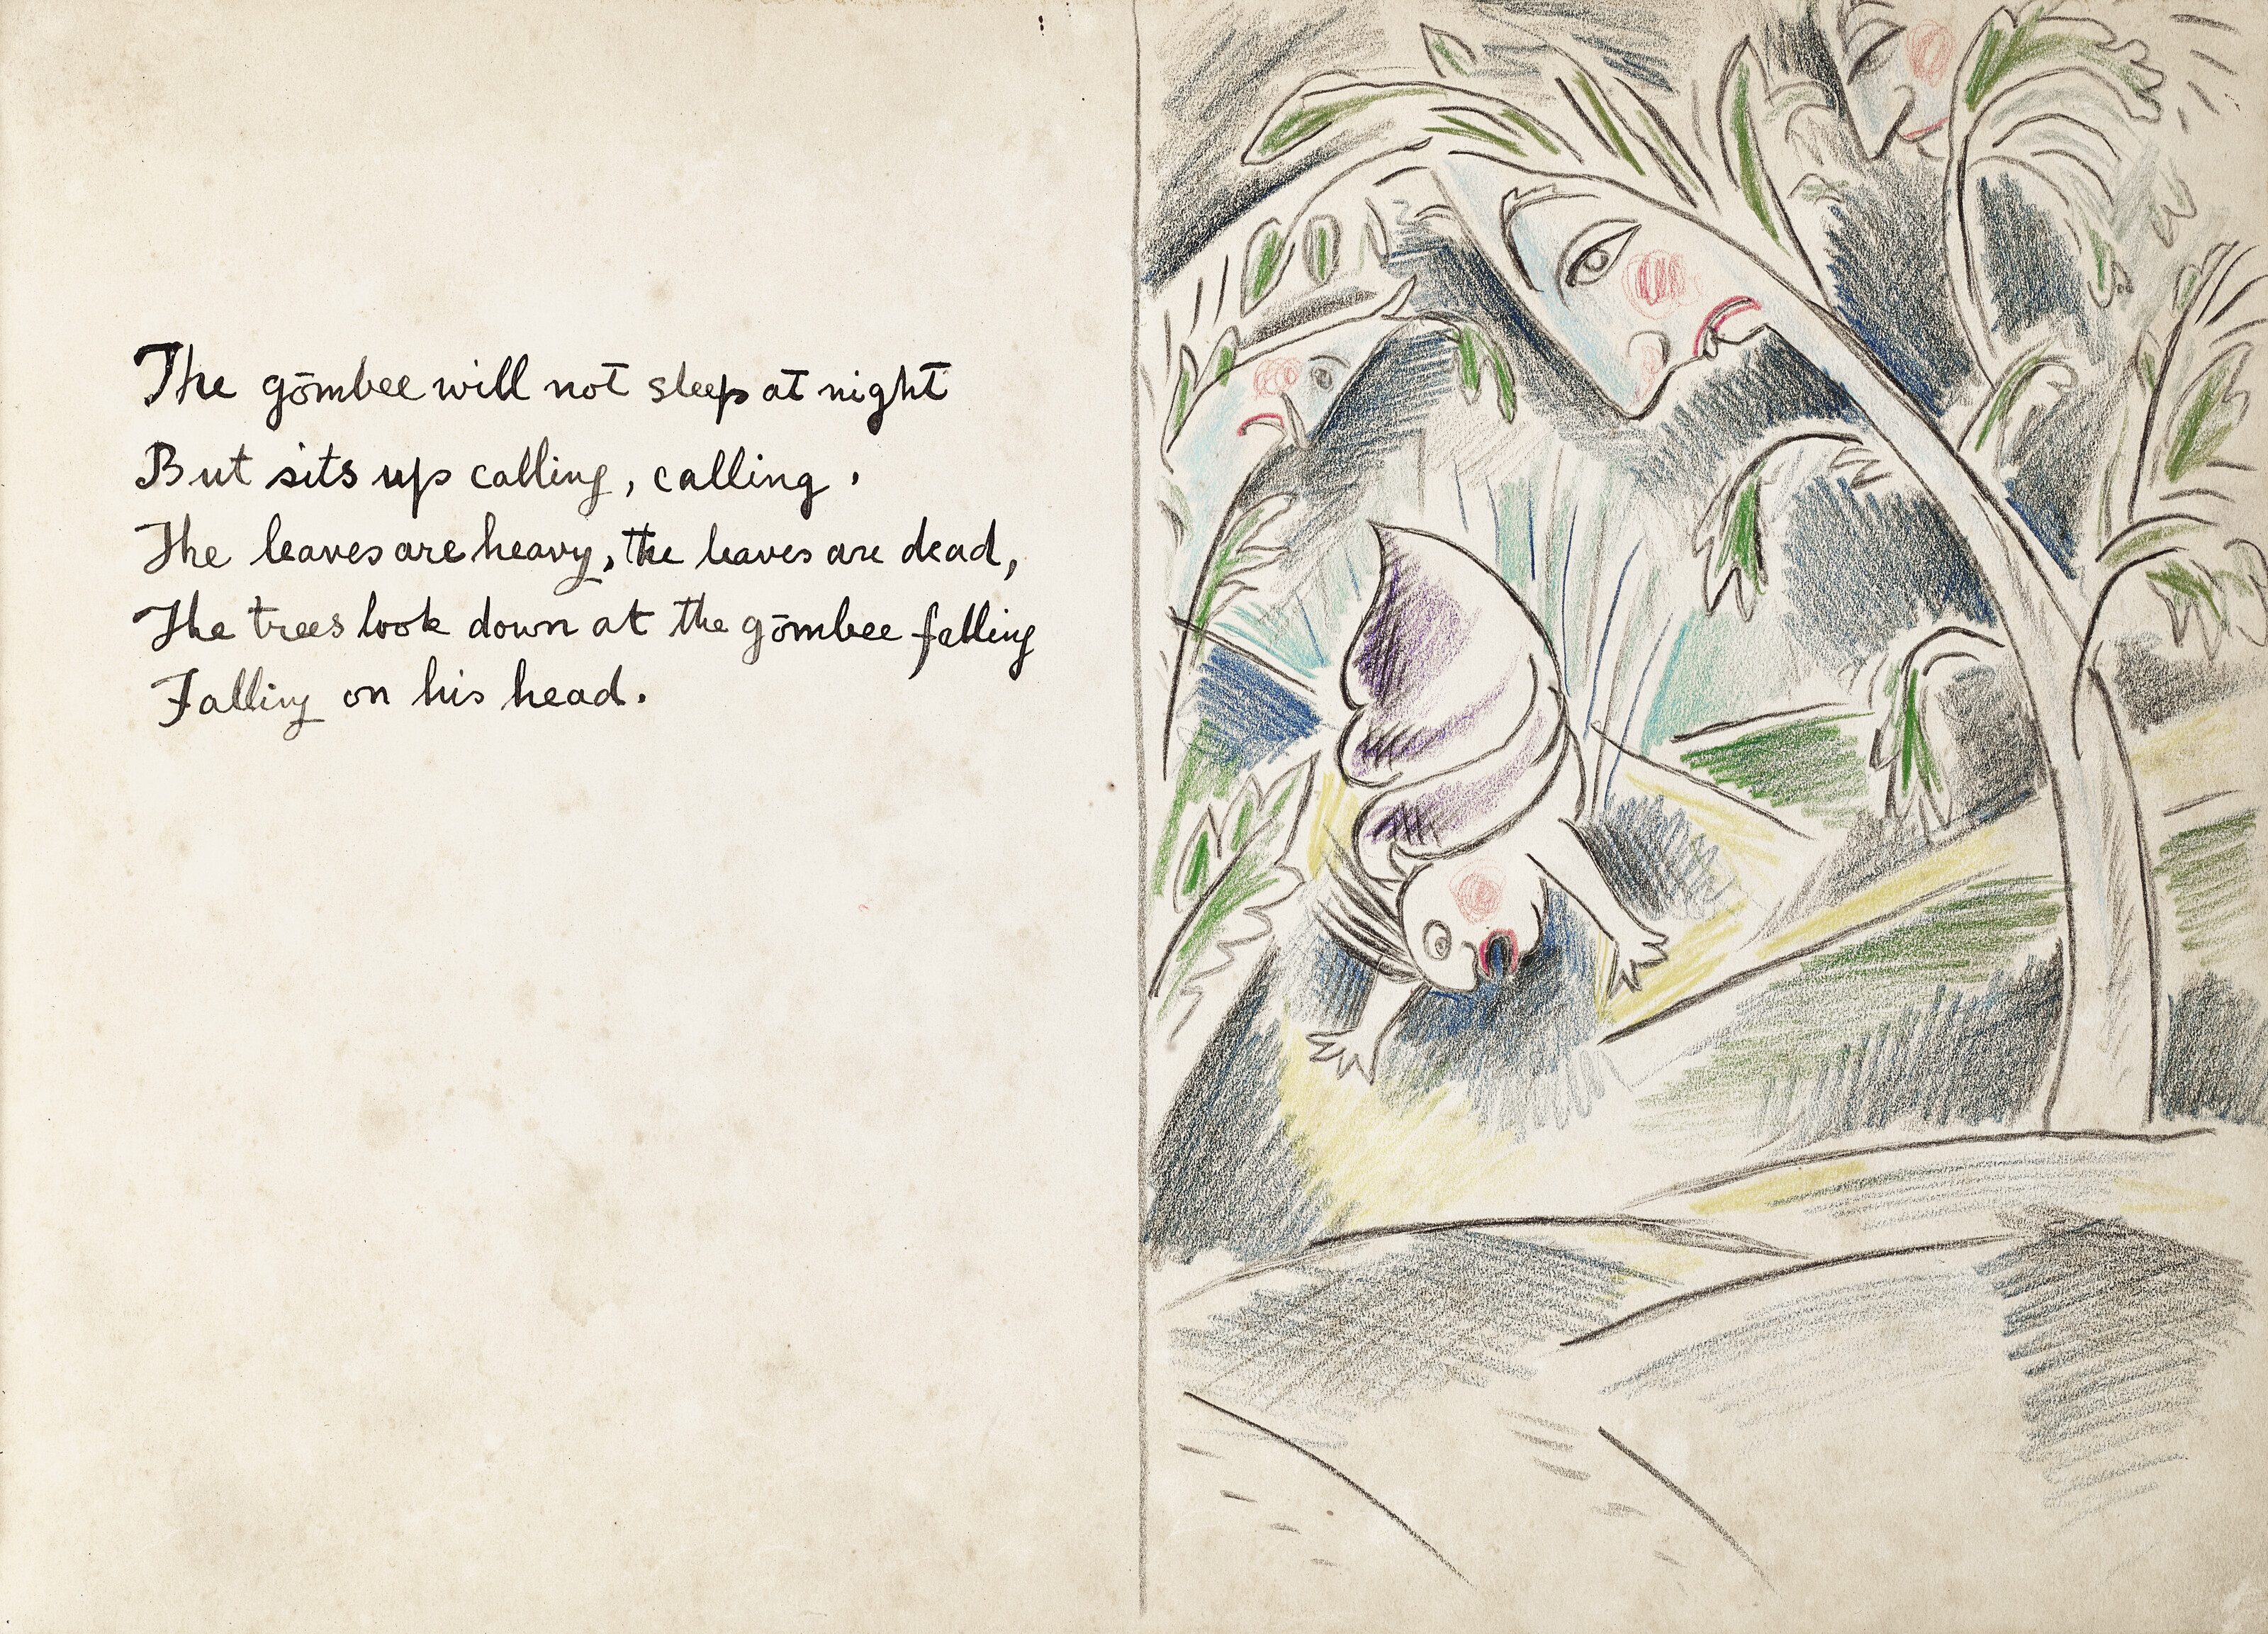 The gōmbee will not sleep at night
But sits up calling, calling.
The leaves are heavy, the leaves are dead,
The trees look down at the gōmbee falling
Falling on his head.